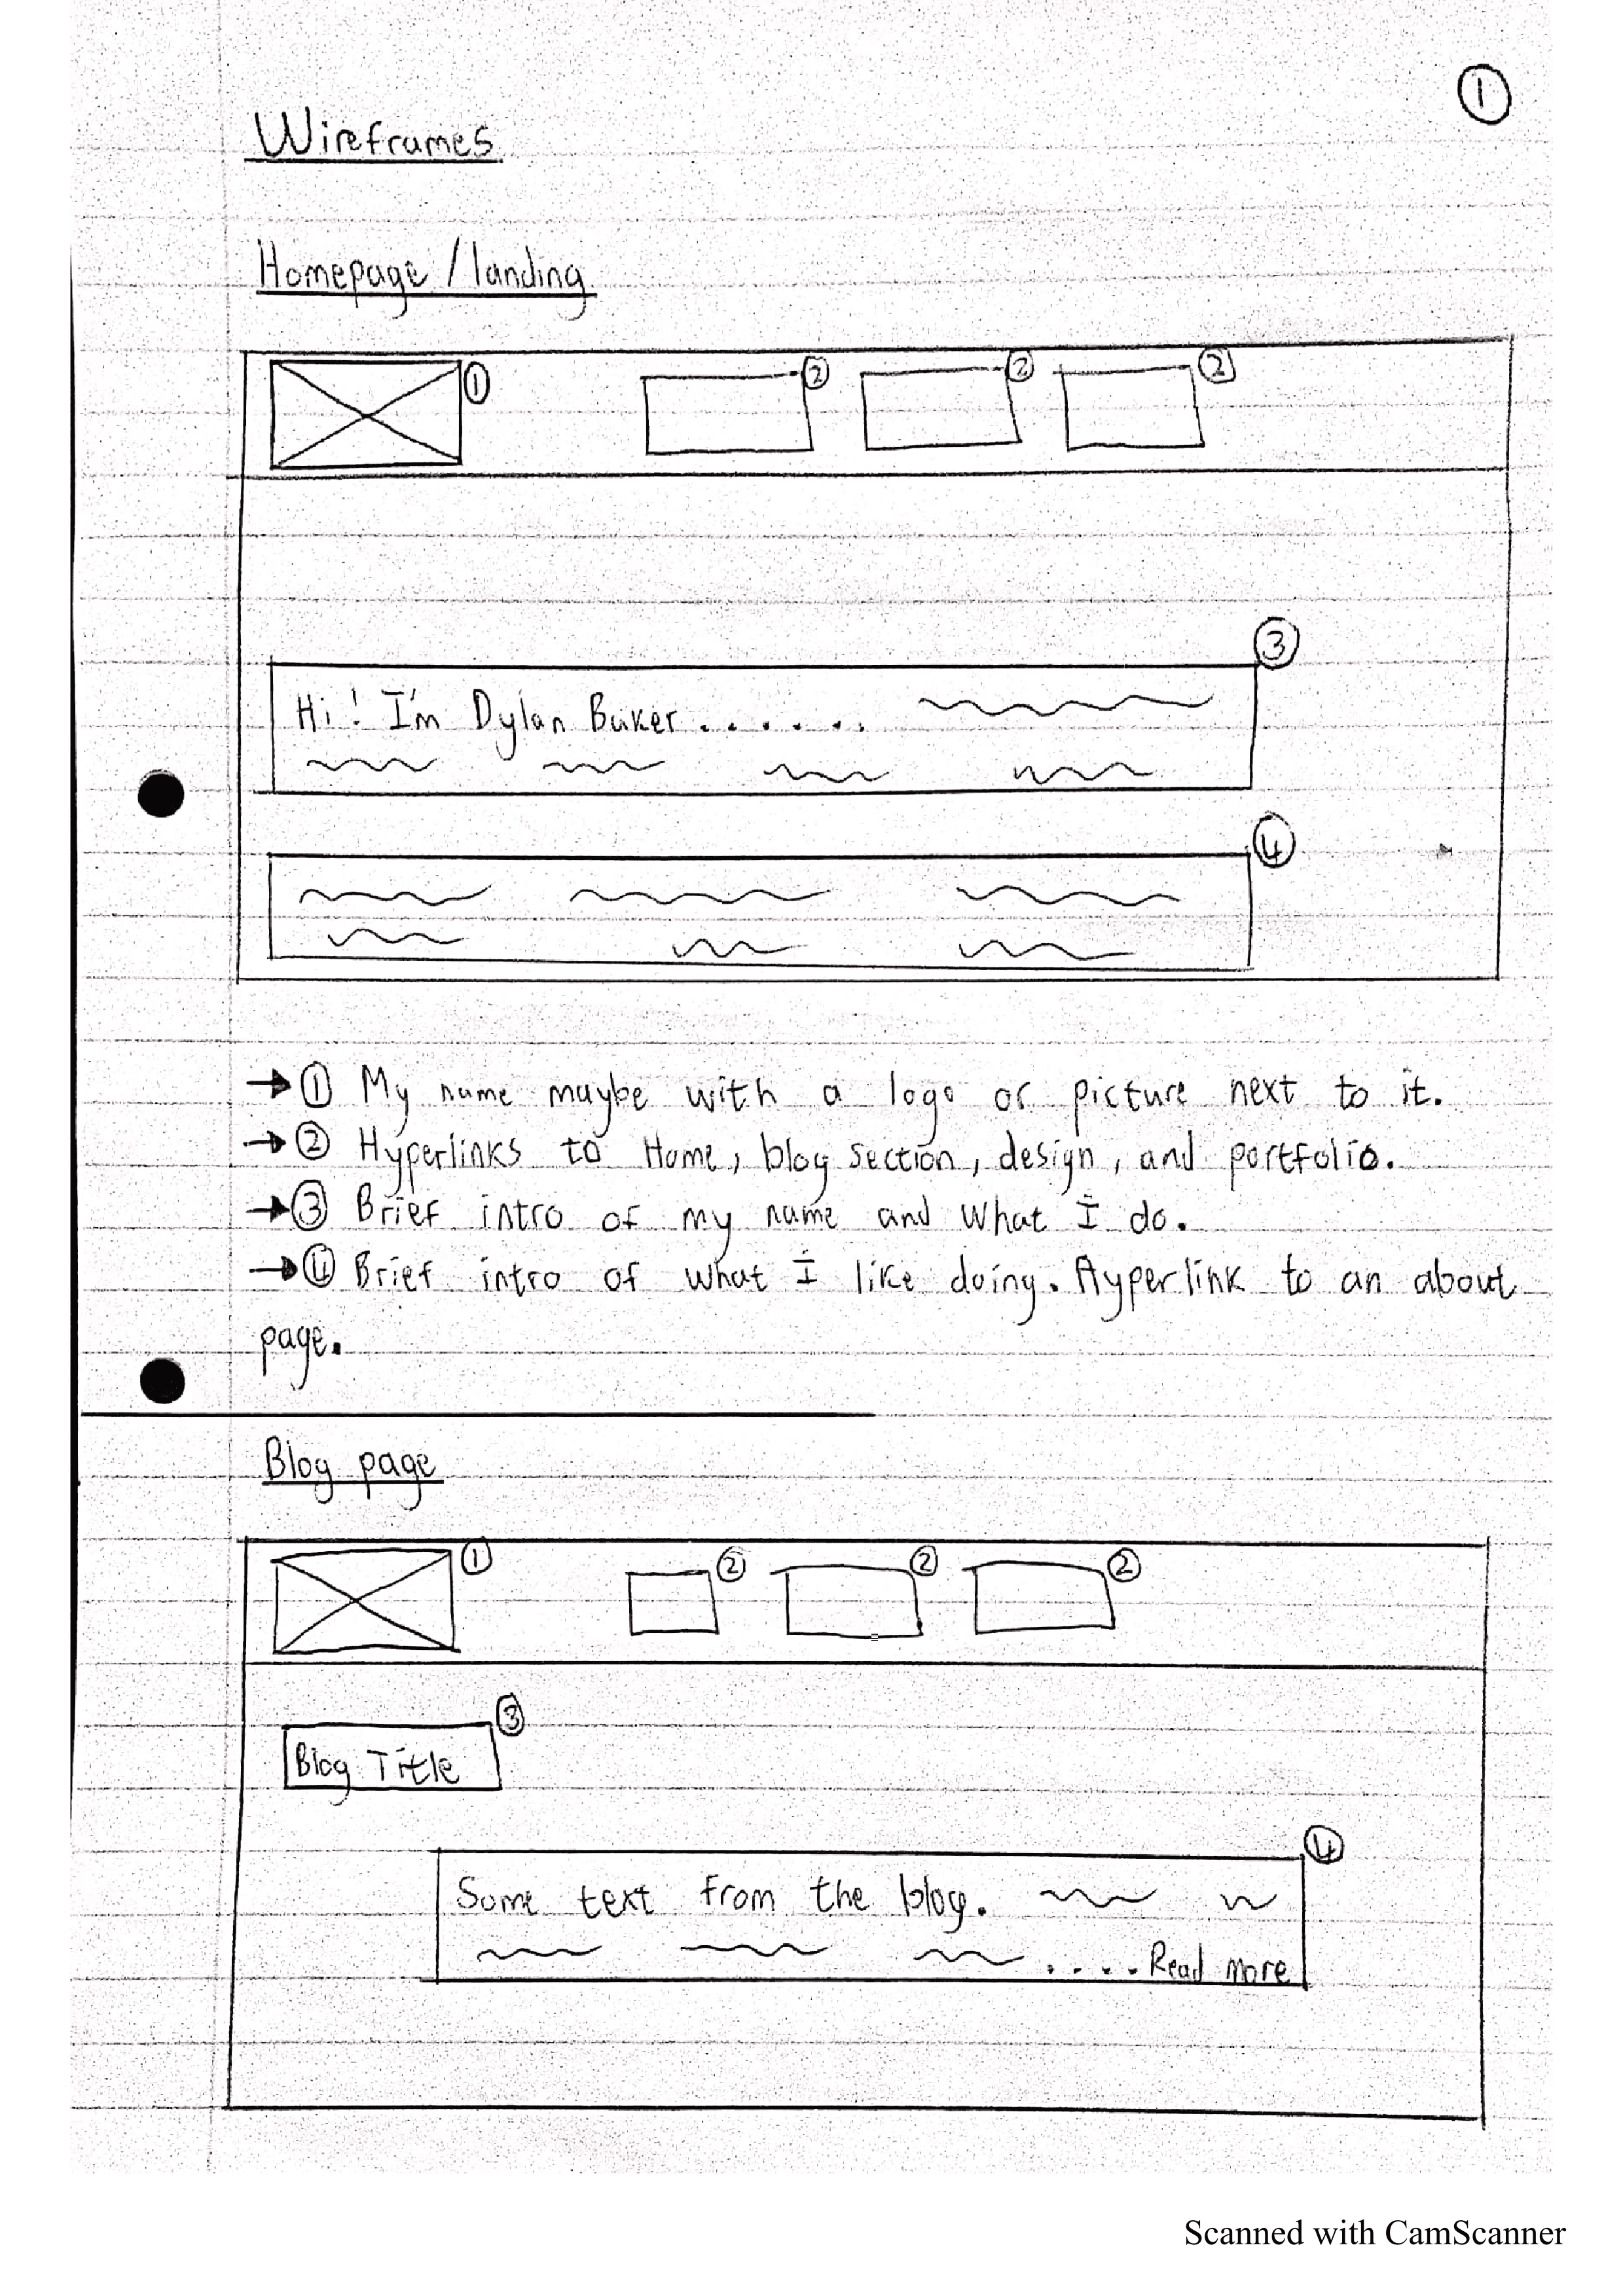 ①
Wireframes
Homepage / landing
① ② ② ②
③
Hi! I'm Dylan Baker.......
④
→① My name maybe with a logo or picture next to it.
→② Hyperlinks to Home, blog section, design, and portfolio.
→③ Brief intro of my name and what I do.
→④ Brief intro of what I like doing. Hyperlink to an about
page.
Blog page
① ② ② ②
③
Blog Title
④
Some text from the blog.
....Read more
Scanned with CamScanner